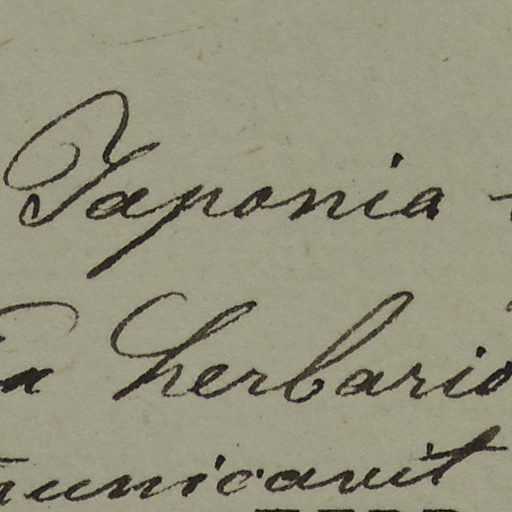 Japonia -
Ex herbario
municavit